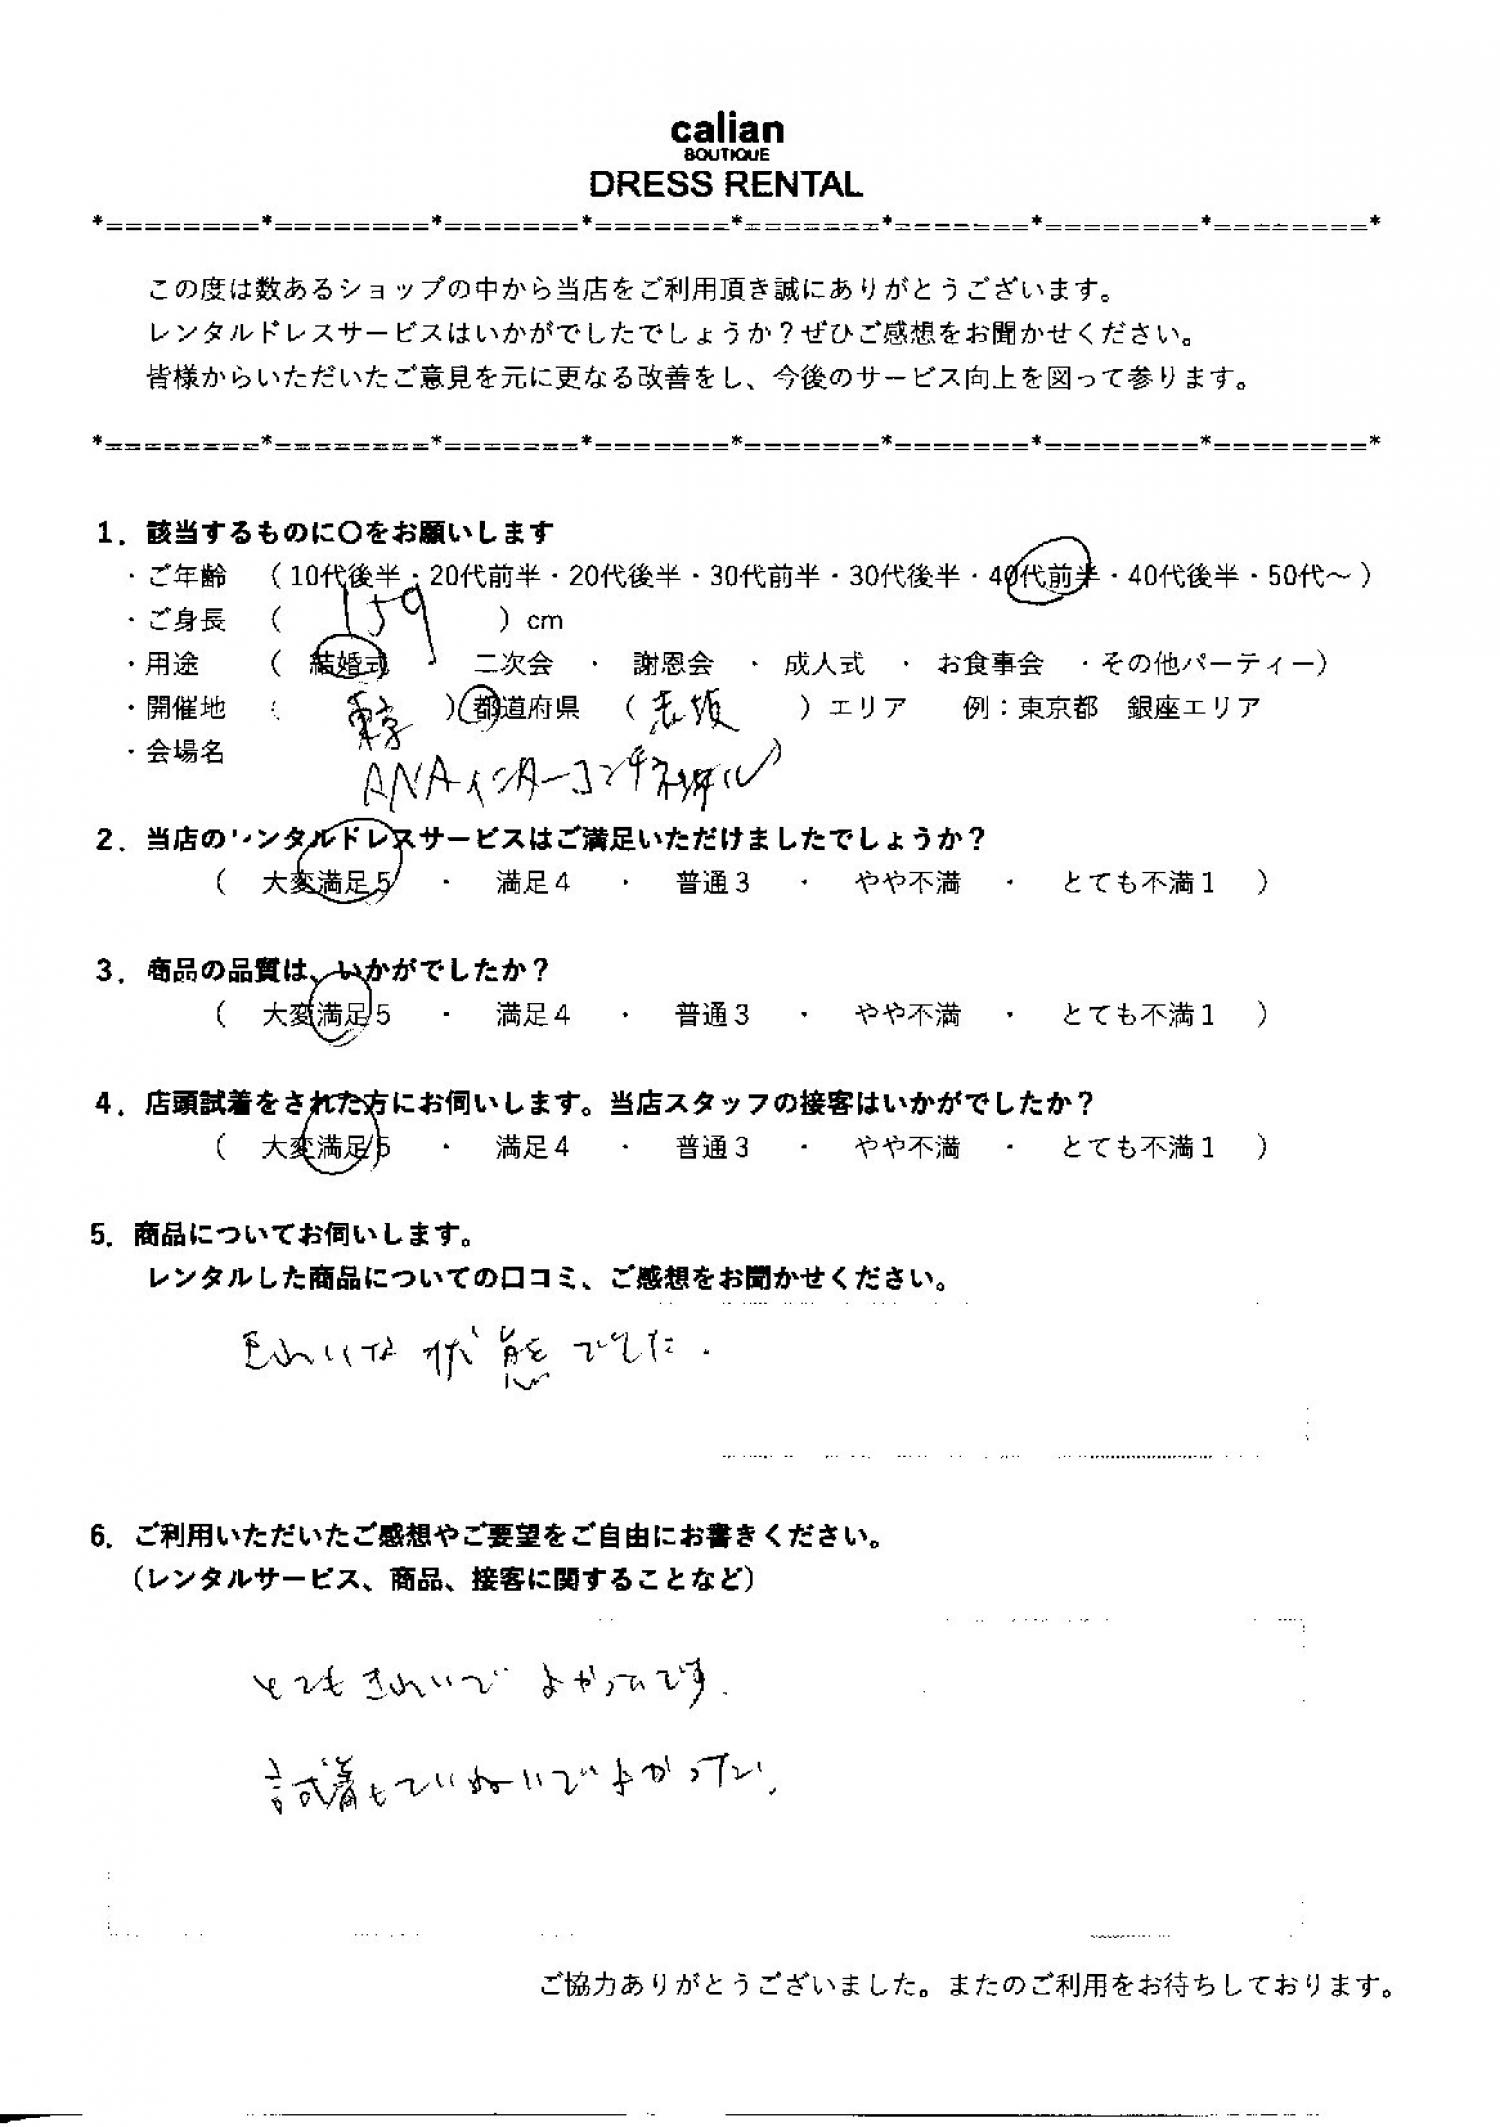 calian
BOUTIQUE
DRESS RENTAL
*========*========*=======*=======*=======*=======*========*========*
この度は数あるショップの中から当店をご利用頂き誠にありがとうございます。
レンタルドレスサービスはいかがでしたでしょうか？ぜひご感想をお聞かせください。
皆様からいただいたご意見を元に更なる改善をし、今後のサービス向上を図って参ります。
*========*========*=======*=======*=======*=======*========*========*
1．該当するものに〇をお願いします
・ご年齢 （ 10代後半・20代前半・20代後半・30代前半・30代後半・40代前半・40代後半・50代～ ）
・ご身長 （ 159 ）cm
・用途 （ 結婚式 ・ 二次会 ・ 謝恩会 ・ 成人式 ・ お食事会 ・その他パーティー）
・開催地 （ 東京 ）都道府県 （ 赤坂 ）エリア 例：東京都 銀座エリア
・会場名 ANAインターコンチネンタル
2．当店のレンタルドレスサービスはご満足いただけましたでしょうか？
（ 大変満足5 ・ 満足4 ・ 普通3 ・ やや不満 ・ とても不満1 ）
3．商品の品質は、いかがでしたか？
（ 大変満足5 ・ 満足4 ・ 普通3 ・ やや不満 ・ とても不満1 ）
4．店頭試着をされた方にお伺いします。当店スタッフの接客はいかがでしたか？
（ 大変満足5 ・ 満足4 ・ 普通3 ・ やや不満 ・ とても不満1 ）
5．商品についてお伺いします。
レンタルした商品についての口コミ、ご感想をお聞かせください。
きれいな状態でした.
6．ご利用いただいたご感想やご要望をご自由にお書きください。
（レンタルサービス、商品、接客に関することなど）
とてもきれいでよかったです.
試着もていねいでよかったです.
ご協力ありがとうございました。またのご利用をお待ちしております。